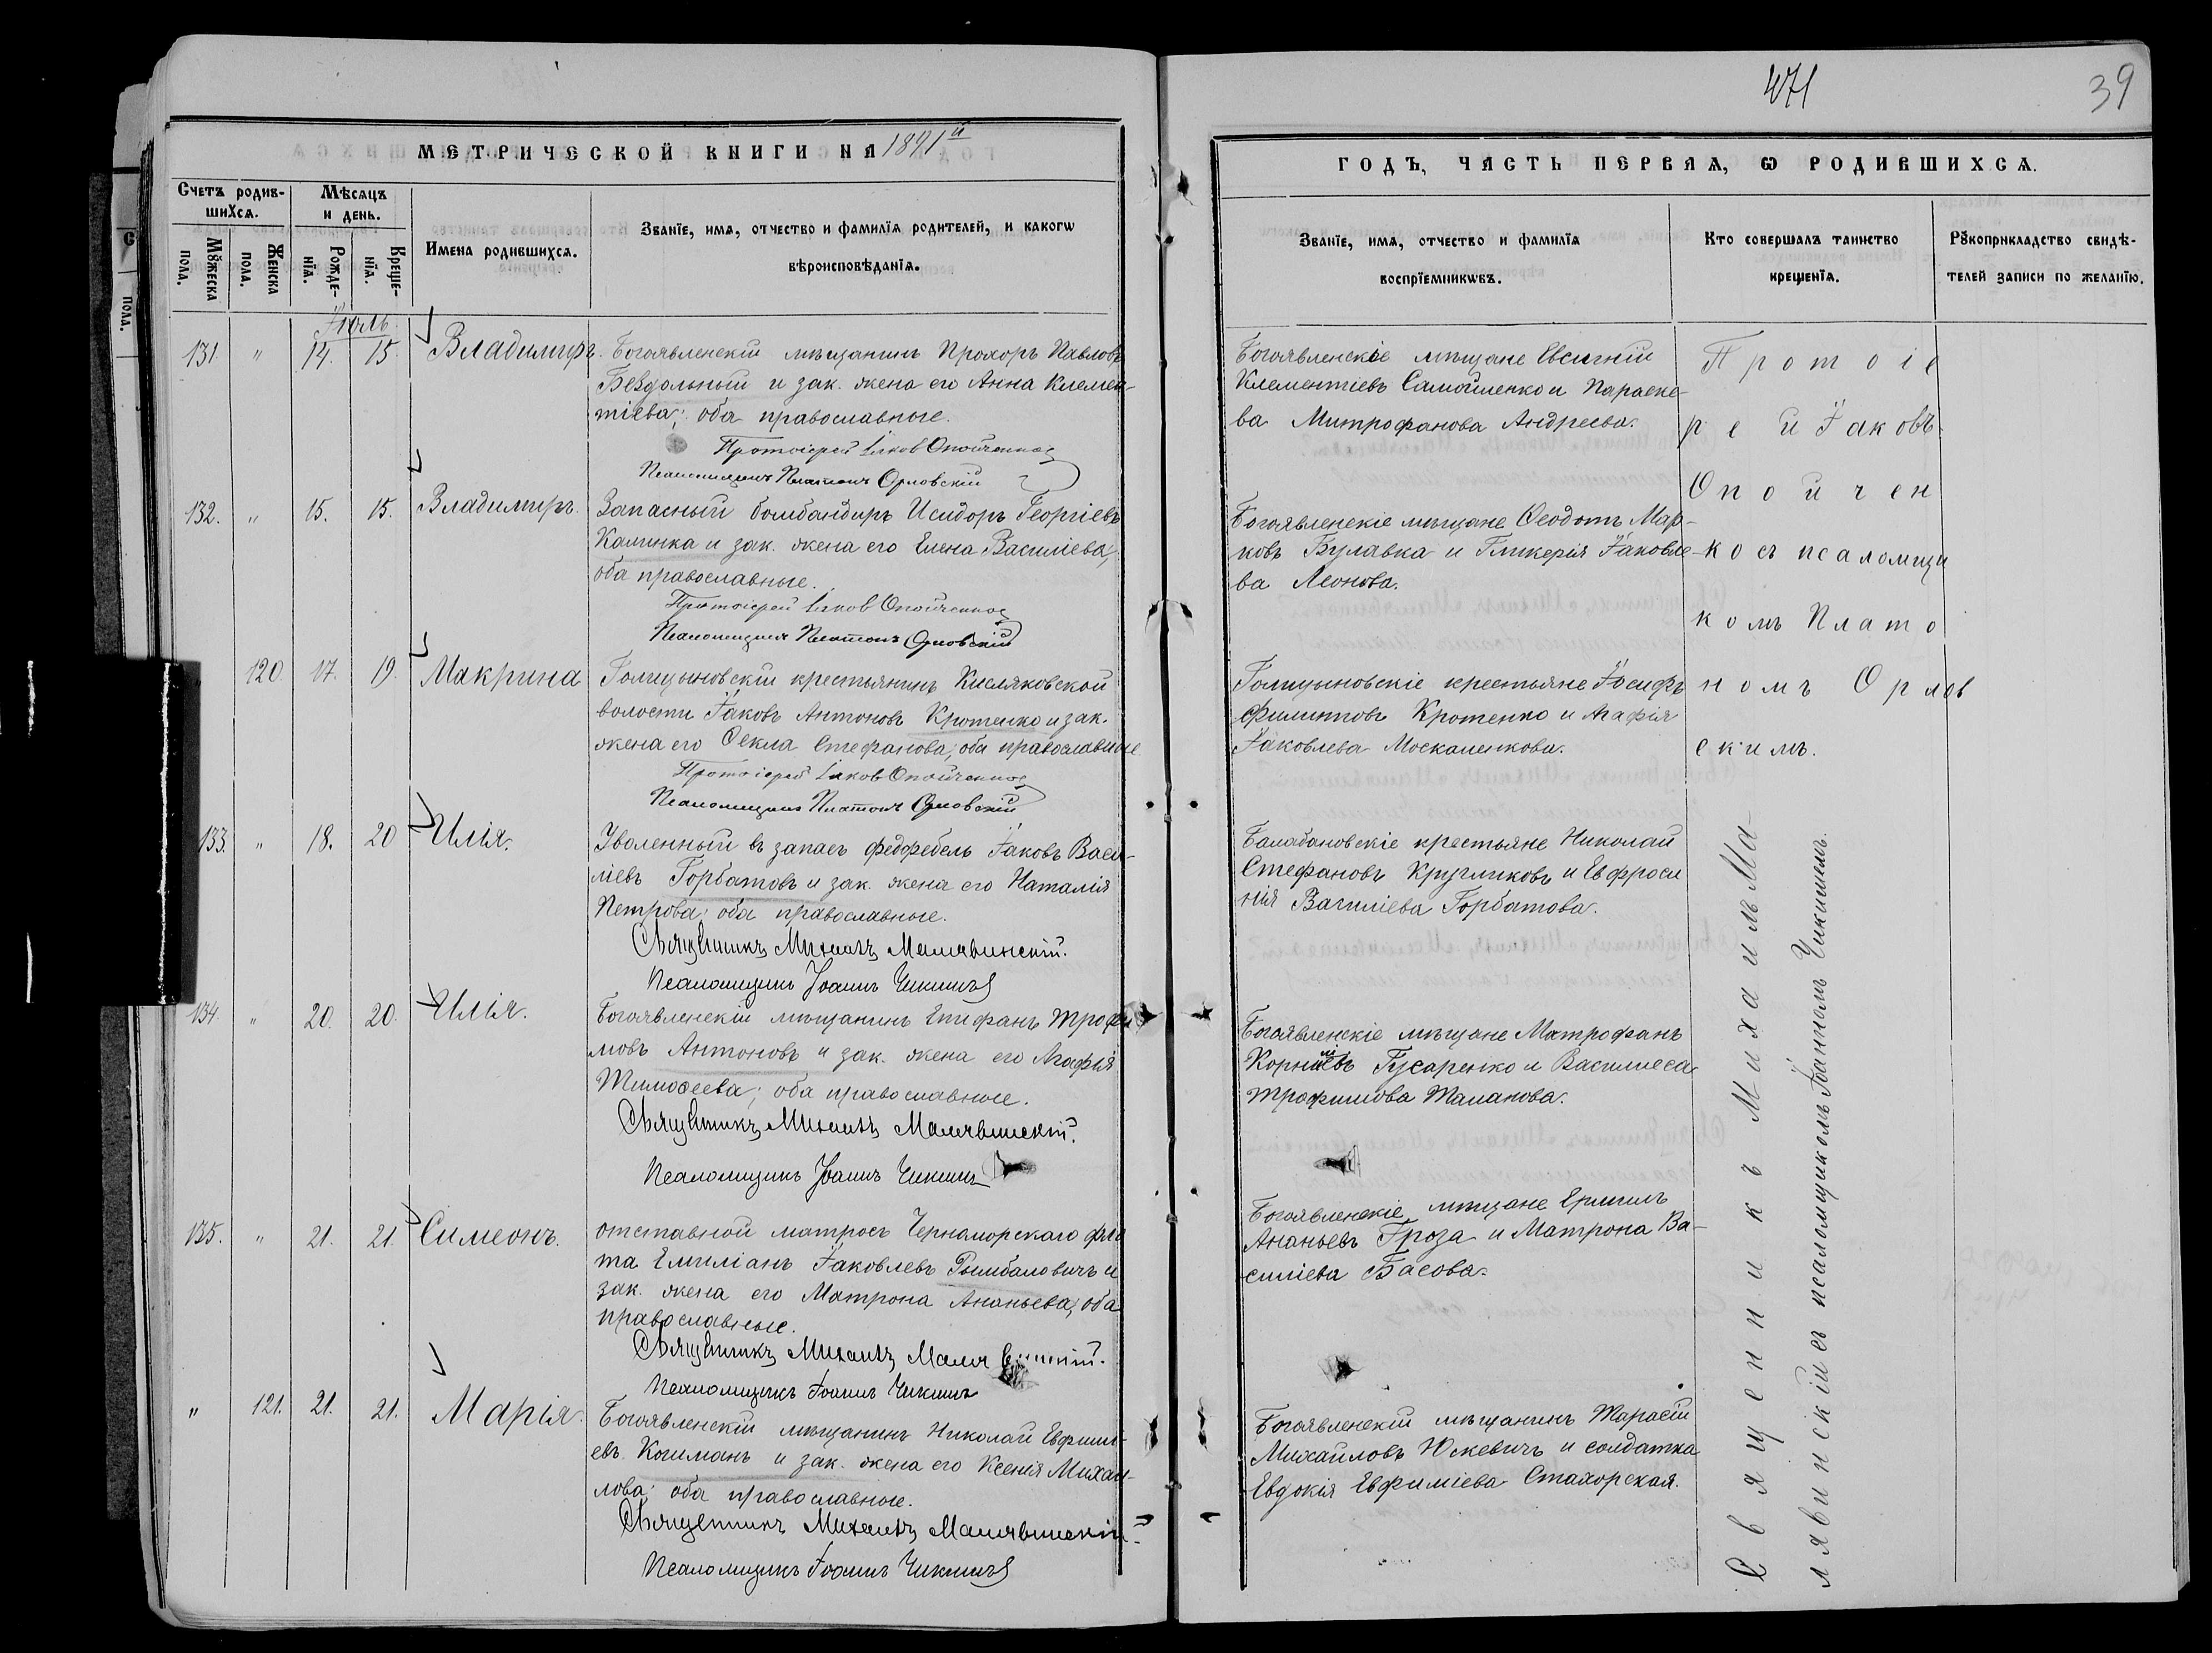 471
39
МЕТРИЧЕСКОЙ КНИГИ НА 1891й
ГОДЪ, ЧАСТЬ ПЕРВАЯ, Ѡ РОДИВШИХСѦ.
Счетъ родив-
шихсѧ.
Мꙋжеска пола.
Женска пола.
Мѣсѧцъ
и день.
Рожде-
нїѧ.
Креще-
нїѧ.
Имена родившихсѧ.
Званїе, имѧ, отчество и фамилїѧ родителей, и какогѡ
вѣроисповѣданїѧ.
Званїе, имѧ, отчество и фамилїѧ
воспрїемникѡвъ.
Кто совершалъ таинство
крещенїѧ.
Рꙋкоприкладство свидѣ-
телей записи по желанїю.
Іюль
131. " 14. 15. Владиміръ.
Богоявленскій мѣщанинъ Прохоръ Павловъ
Бездольный и зак. жена его Анна Клемен-
тіева; оба православные.
Протоіерей Іаков Опойченко
Псаломщикъ Платонъ Орловскій
Богоявленскіе мѣщане Евсигній
Клементіевъ Самойленко и Параске-
ва Митрофанова Андреева.
132. " 15. 15. Владиміръ.
Запасный бомбандиръ Исидоръ Георгіевъ
Калинка и зак. жена его Елена Василіева,
оба православные.
Протоіерей Іаков Опойченко
Псаломщикъ Платонъ Орловскій
Богоявленскіе мѣщане Ѳеодотъ Мар-
ковъ Булавка и Гликерія Іаковле-
ва Леонова.
120. 17. 19. Макрина
Голицыновскій крестьянинъ Кисляковской
волости Іаковъ Антоновъ Кротенко и зак.
жена его Ѳекла Стефанова; оба православные
Протоіерей Іаков Опойченко
Псаломщикъ Платонъ Орловскій
Голицыновскіе крестьяне Іосифъ
Филиповъ Кротенко и Агафія
Іаковлева Москаленкова.
Протоіе
рей Іаковъ
Опойчен
ко съ псаломщи
комъ Плато
номъ Орлов
скимъ.
133. " 18. 20 Илія.
Уволенный въ запасъ федфебель Іаковъ Васи-
ліевъ Горбатовъ и зак. жена его Наталія
Петрова; оба православные.
Священникъ Михаилъ Малявинскій.
Псаломщикъ Іоаннъ Чикинъ
Балабановскіе крестьяне Николай
Стефановъ Кругликовъ и Евфроси
нія Василіева Горбатова.
134. " 20. 20. Илія.
Богоявленскій мѣщанинъ Епифанъ Трофи
мовъ Антоновъ и зак. жена его Агафія
Тимоѳеева; оба православные.
Священникъ Михаилъ Малявинскій.
Псаломщикъ Іоаннъ Чикинъ
Богоявленскіе мѣщане Матрофанъ
Корніевъ Гусаренко и Василиса
Трофимова Таланова.
135. " 21. 21. Симеонъ.
отставной матросъ Черноморскаго фло
та Емиліанъ Іаковлевъ Рымбаловичъ и
зак. жена его Матрона Ананьева; оба
православные.
Священникъ Михаилъ Малявинскій.
Псаломщикъ Іоаннъ Чикинъ
Богоявленскіе мѣщане Ермилъ
Ананьевъ Гроза и Матрона Ва-
силіева Басова.
" 121. 21. 21. Марія.
Богоявленскій мѣщанинъ Николай Евфимі-
евъ Коциманъ и зак. жена его Ксенія Михаи-
лова; оба православные.
Священникъ Михаилъ Малявинскій
Псаломщикъ Іоаннъ Чикинъ
Богоявленскій мѣщанинъ Тарасій
Михайловъ Юскевичъ и солдатка
Евдокія Евфиміева Стахорская.
Священникъ Михаилъ Ма-
лявинскій съ псаломщикомъ Іоанномъ Чикинымъ.